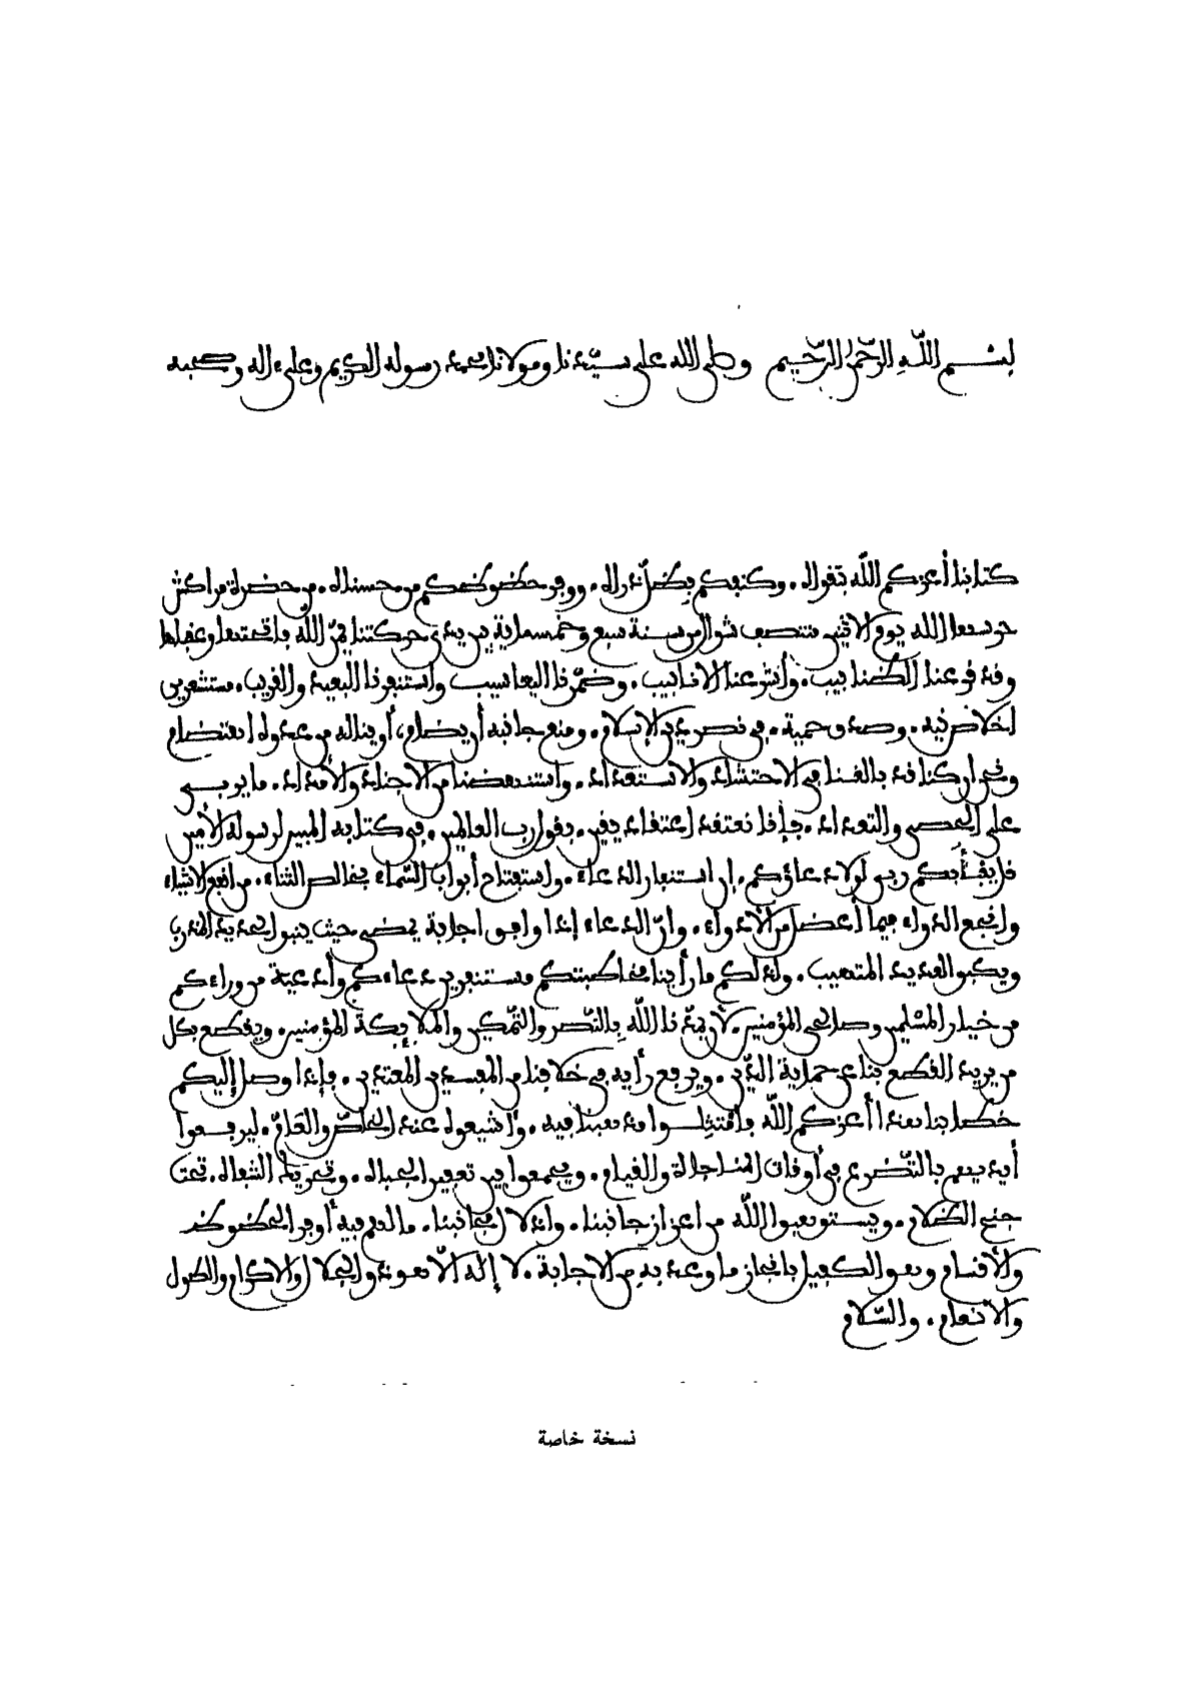 بسم اللّه الرّحمٰن الرّحيم وصلى الله على سيّدنا ومولانا محمد رسوله الكريم وعلى ءاله وصحبه
كتابنا أعزكم اللّه بتقواه. وكنفكم بظلّ ذراه. ووفر حظوظكم من حسناه. من حضرة مراكش
حرسها الله يوم الاثنين منتصف شوال من سنة سبع وخمسماية بين يدي حركتنا يمّن اللّه باقصدها وعقباها
وقد قرعنا الظنابيب. وأشرعنا الانابيب. وضمّرنا اليعاسيب واستنفرنا البعيد والقريب. مستشعرين
اخلاص نيه. وصدق حمية. في نصر دين الإسلام. ومنع جانبه أن يضام، أو يناله من عدوه اهتضام
ونحن ان كنا قد بالغنا في الاحتشاد والاستعداد. واستنهضنا من الاجناد والأمداد. ما يربى
على الحصى والتعداد. فإنا نعتقد اعتقاد يقين. بقول رب العالمين. في كتابه المبين لرسوله الأمين
قل ما يعبأ بكم ربي لولا دعاؤكم. ان استنفار الدعاء. واستفتاح أبواب السّماء بخالص الثناء. من انفع الاشياء
وانجع الدواء فيما أعضل من الأدواء. وانّ الدعاء إذا وافق اجابة يمضي حيث ينبو الحديد المذرب
ويكبو العديد المتهيب. ولذلكم ما رأينا مخاطبتكم مستنفرين دعاءكم وأدعية من وراءكم
من خيار المسلمين وصالحي المؤمنين. لأن يمدّنا اللّه بالنّصر والتّمكين والملائكة المؤمنين. ويقطع بكل
من يريد القطع بنا عن حماية الدّين. ويرفع رأيه في خلافنا من المفسدين المعتدين. فإذا وصل إليكم
خطابنا هذا أعزكم اللّه فامتثلوا مذهبنا فيه. وأشيعوه عند الخاصّ والعامّ. ليرفعوا
أيديهم بالتّضرع في أوقات المناجاة والقيام. ويجمعوا بين تعفير الجباه. وتحريك الشفاه. تحت
جنح الظلام. ويستوهبوا اللّه من اعزاز جانبنا. واذلال مجانبنا. ما لهم فيه أوفر الحظوظ
والأقسام وهو الكفيل بانجاز ما وعد به من الاجابة. لا إله الّا هو ذو الجلال والاكرام والطول
والأنعام. والسّلام
نسخة خاصة